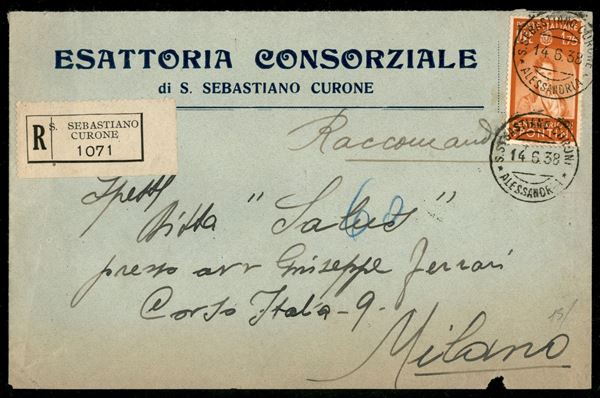 ESATTORIA CONSORZIALE
di S. SEBASTIANO CURONE
1,75
S. SEBASTIANO CURONE
14.6.38
ALESSANDRIA
R
S. SEBASTIANO
CURONE
1071
Raccomand
S. SEBASTIANO CURONE
14.6.38
ALESSANDRIA
Spett
Ditta "Salus"
presso avv Giuseppe Ferrari
Corso Italia - 9
Milano